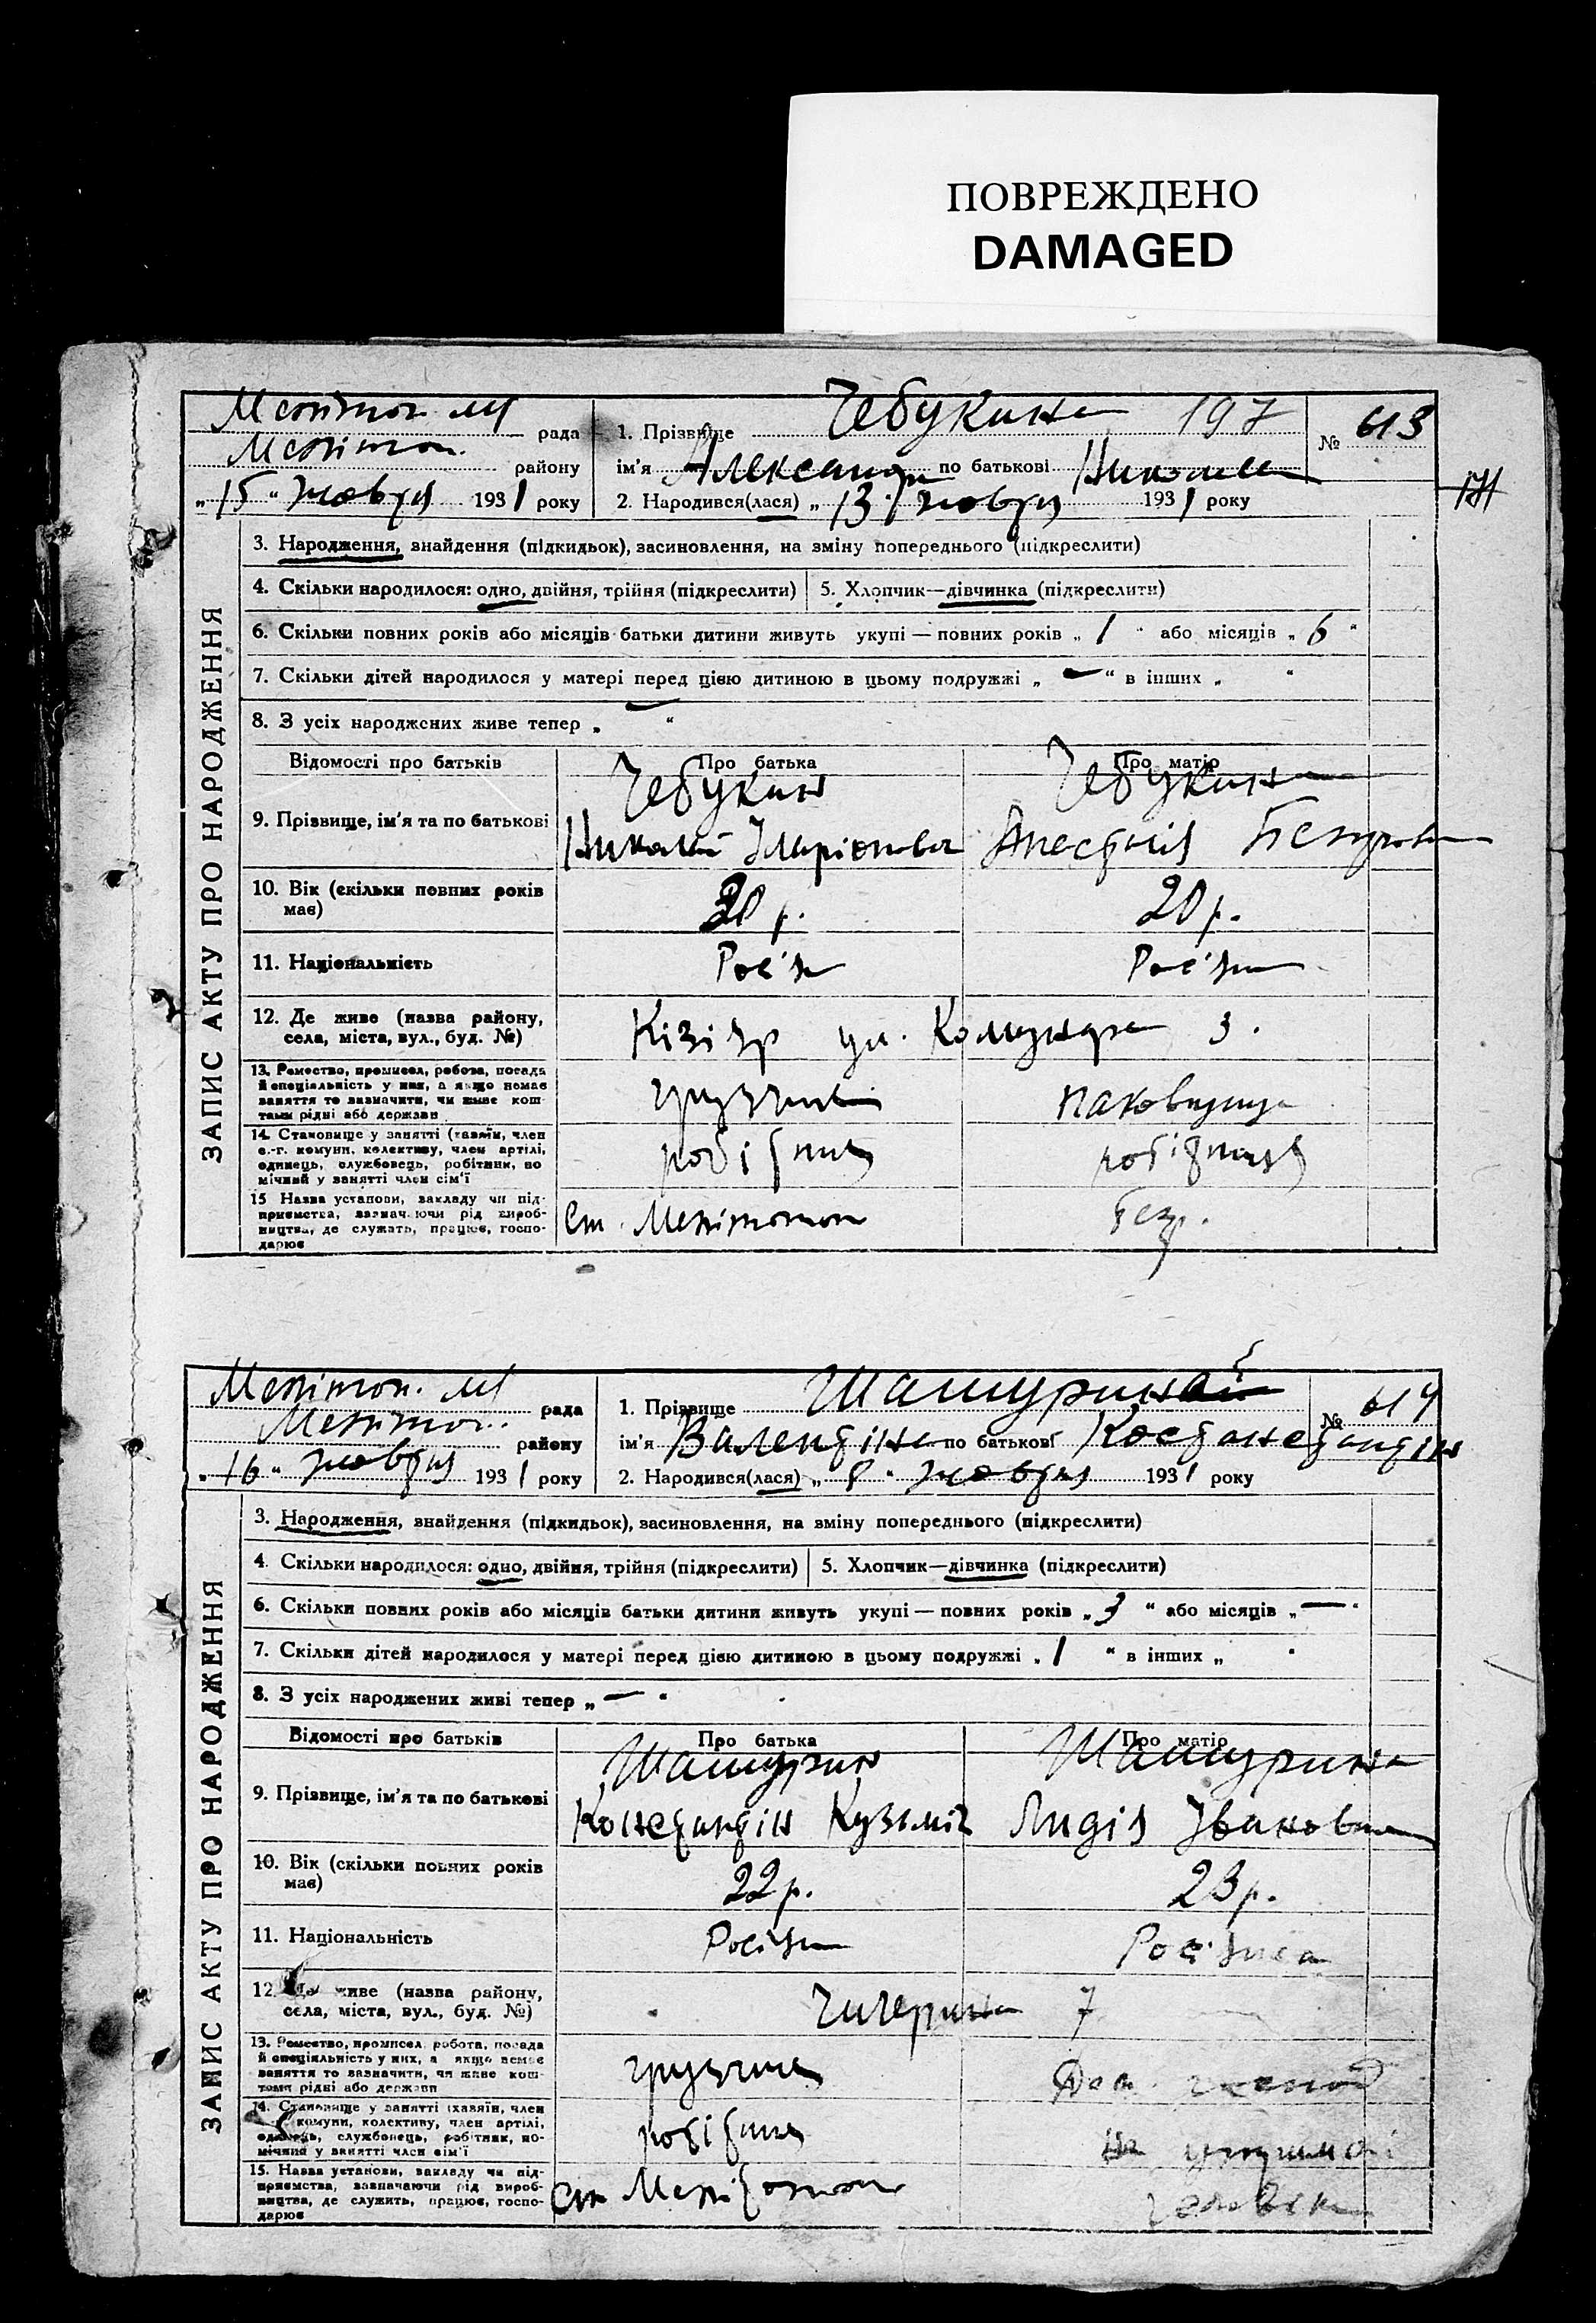 ПОВРЕЖДЕНО
DAMAGED
Меліт. рада
1. Прізвище Чебукина 197
№ 613
Меліт. району
ім'я Александра по батькові Николаев
„15“ жовтня 1931 року
2. Народився(лася) „13“ жовтня 1931 року
171
ЗАПИС АКТУ ПРО НАРОДЖЕННЯ
3. Народження, знайдення (підкидьок), засиновлення, на зміну попереднього (підкреслити)
4. Скільки народилося: одно, двійня, трійня (підкреслити)
5. Хлопчик—дівчинка (підкреслити)
6. Скільки повних років або місяців батьки дитини живуть укупі — повних років „1“ або місяців „6“
7. Скільки дітей народилося у матері перед цією дитиною в цьому подружжі „—“ в інших „ “
8. З усіх народжених живе тепер „—“
Відомості про батьків
Про батька
Про матір
9. Прізвище, ім'я та по батькові
Чебукин
Николай Іларіонович
Чебукина
Анестасія
10. Вік (скільки повних років має)
30 р.
20 р.
11. Національність
Росіян
Росіян
12. Де живе (назва району, села, міста, вул., буд. №)
Кізіяр ул. Комунара 3.
13. Ремество, промисел, робота, посада й спеціяльність у них, а якщо немає заняття то зазначити, чи живе коштами рідні або держави
грузчик
паковщица
14. Становище у занятті (хазяїн, член с.-г. комуни, колективу, член артілі, одинець, службовець, робітник, помічний у занятті член сім'ї
робітник
робітниця
15. Назва установи, закладу чи підприємства, зазначаючи рід виробництва, де служить, працює, господарює
Ст. Мелітополь
безр.
Меліт. рада
1. Прізвище Шашурина
№ 614
Меліт. району
ім'я Валентіна по батькові Костянстантін
„16“ жовтня 1931 року
2. Народився(лася) „8“ жовтня 1931 року
ЗАПИС АКТУ ПРО НАРОДЖЕННЯ
3. Народження, знайдення (підкидьок), засиновлення, на зміну попереднього (підкреслити)
4. Скільки народилося: одно, двійня, трійня (підкреслити)
5. Хлопчик—дівчинка (підкреслити)
6. Скільки повних років або місяців батьки дитини живуть укупі — повних років „3“ або місяців „—“
7. Скільки дітей народилося у матері перед цією дитиною в цьому подружжі „1“ в інших „ “
8. З усіх народжених живі тепер „—“
Відомості про батьків
Про батька
Про матір
9. Прізвище, ім'я та по батькові
Шашурин
Константін Кузьміч
Шашурина
Лидія Івановна
10. Вік (скільки повних років має)
22 р.
23 р.
11. Національність
Росіян
Росіянка
12. Де живе (назва району, села, міста, вул., буд. №)
Чичерина 7
13. Ремество, промисел, робота, посада й спеціяльність у них, а якщо немає заняття то зазначити, чи живе коштами рідні або держави
грузчик
Дом. господ
14. Становище у занятті (хазяїн, член комуни, колективу, член артілі, одинець, службовець, робітник, помічний у занятті член сім'ї
робітник
на утримані
15. Назва установи, закладу чи підприємства, зазначаючи рід виробництва, де служить, працює, господарює
Ст Мелітополь
человека